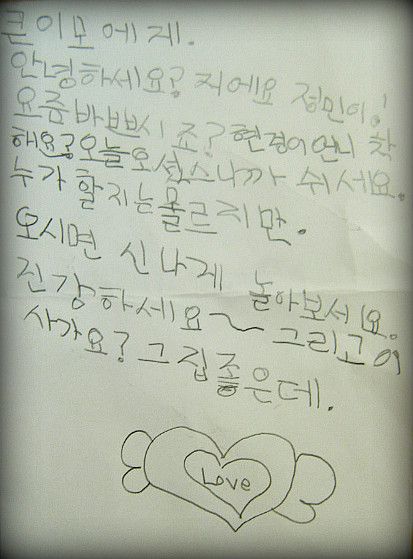 큰이모에게.
안녕하세요? 저에요 정민이!
요줌바쁘시죠? 현경이언니 착
해요? 오늘오셨스니까 쉬세요.
누가 할지는 몰르지만.
오시면 신나게 놀아보세요.
진강하세요~ 그리고 이
사가요? 그집좋은데.
Love